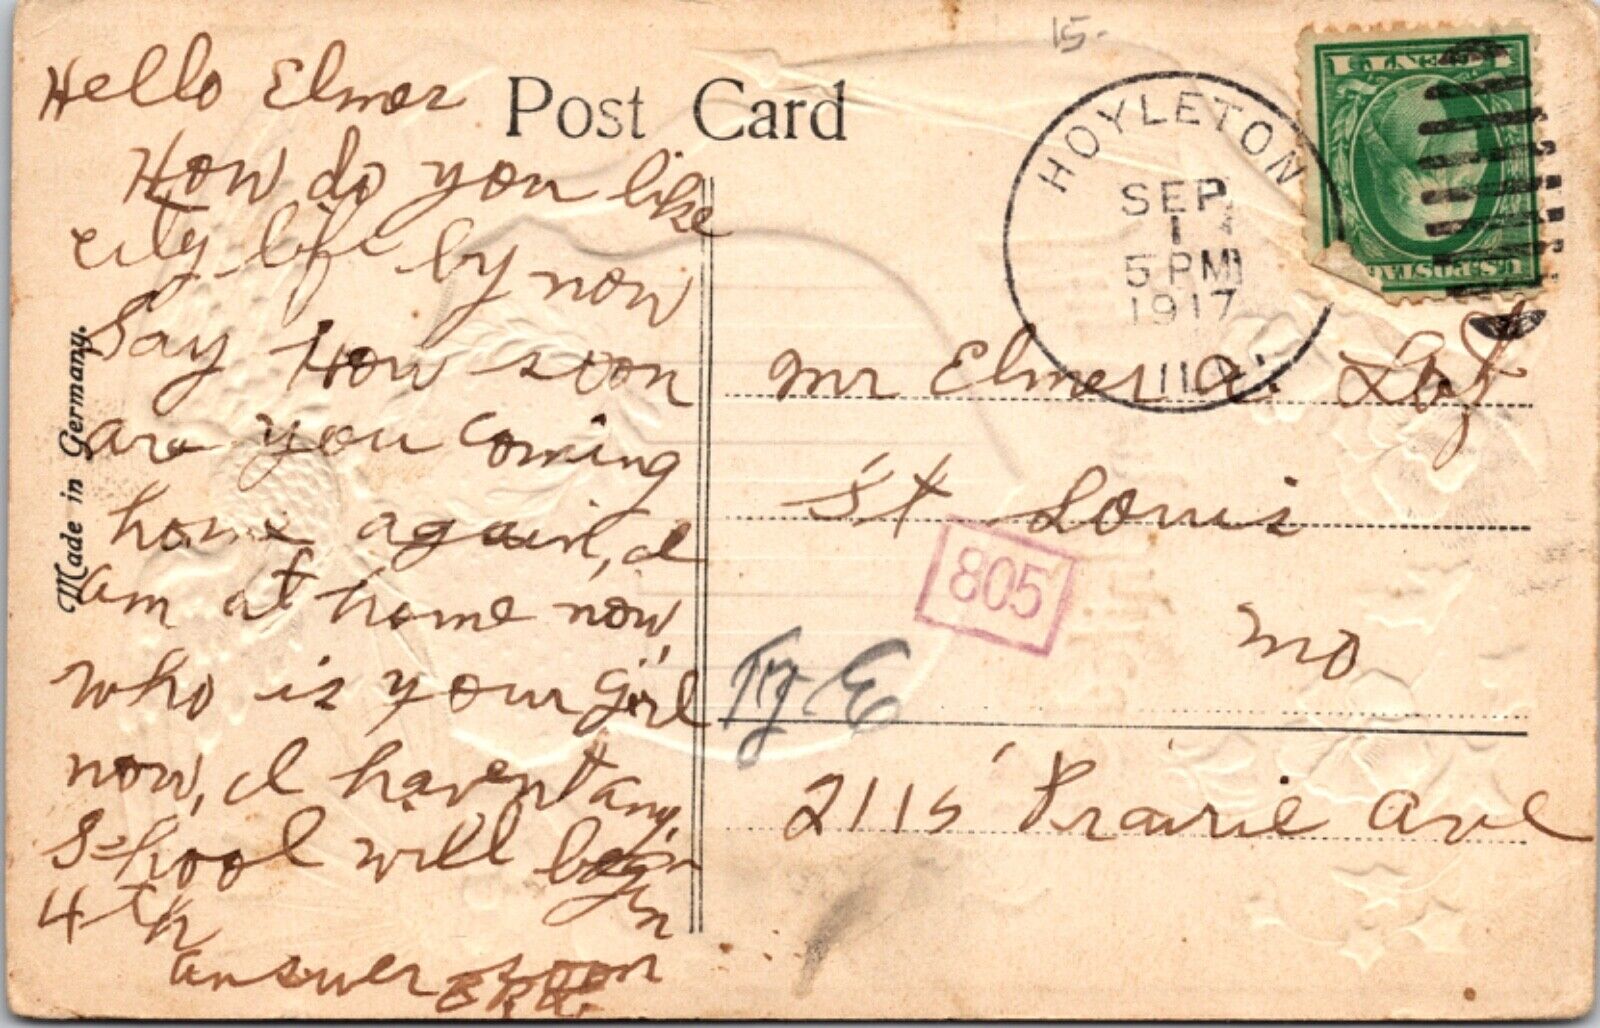 15.
Post Card
Hello Elmer
How do you like
city life by now
Say How soon
are you coming
home again, I
am at home now,
who is your girl
now, I haven't any.
School will begin
4th
answer soon
Made in Germany.
HOYLETON
SEP
1
5 PM
1917
ILL.
1 CENT 1
U.S. POSTAGE
Mr Elmer A.
St Louis
Mo
805
Try E
2115 Prairie Ave